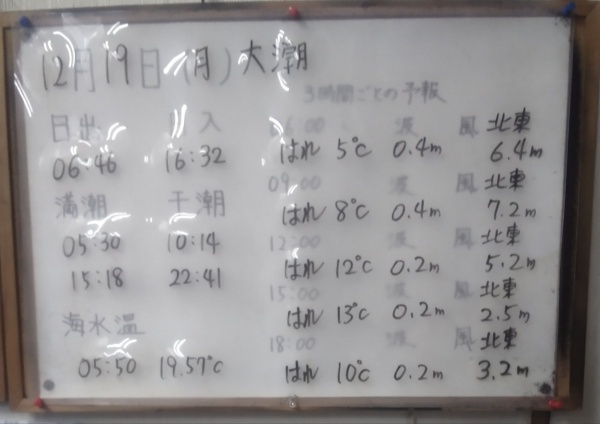 12月19日(月)大潮
3時間ごとの予報
日出 日入
06:46 16:32
満潮 干潮
05:30 10:14
15:18 22:41
海水温
05:50 19.57℃
6:00 波 風 北東
はれ 5℃ 0.4m 6.4m
09:00 波 風 北東
はれ 8℃ 0.4m 7.2m
12:00 波 風 北東
はれ 12℃ 0.2m 5.2m
15:00 波 風 北東
はれ 13℃ 0.2m 2.5m
18:00 波 風 北東
はれ 10℃ 0.2m 3.2m